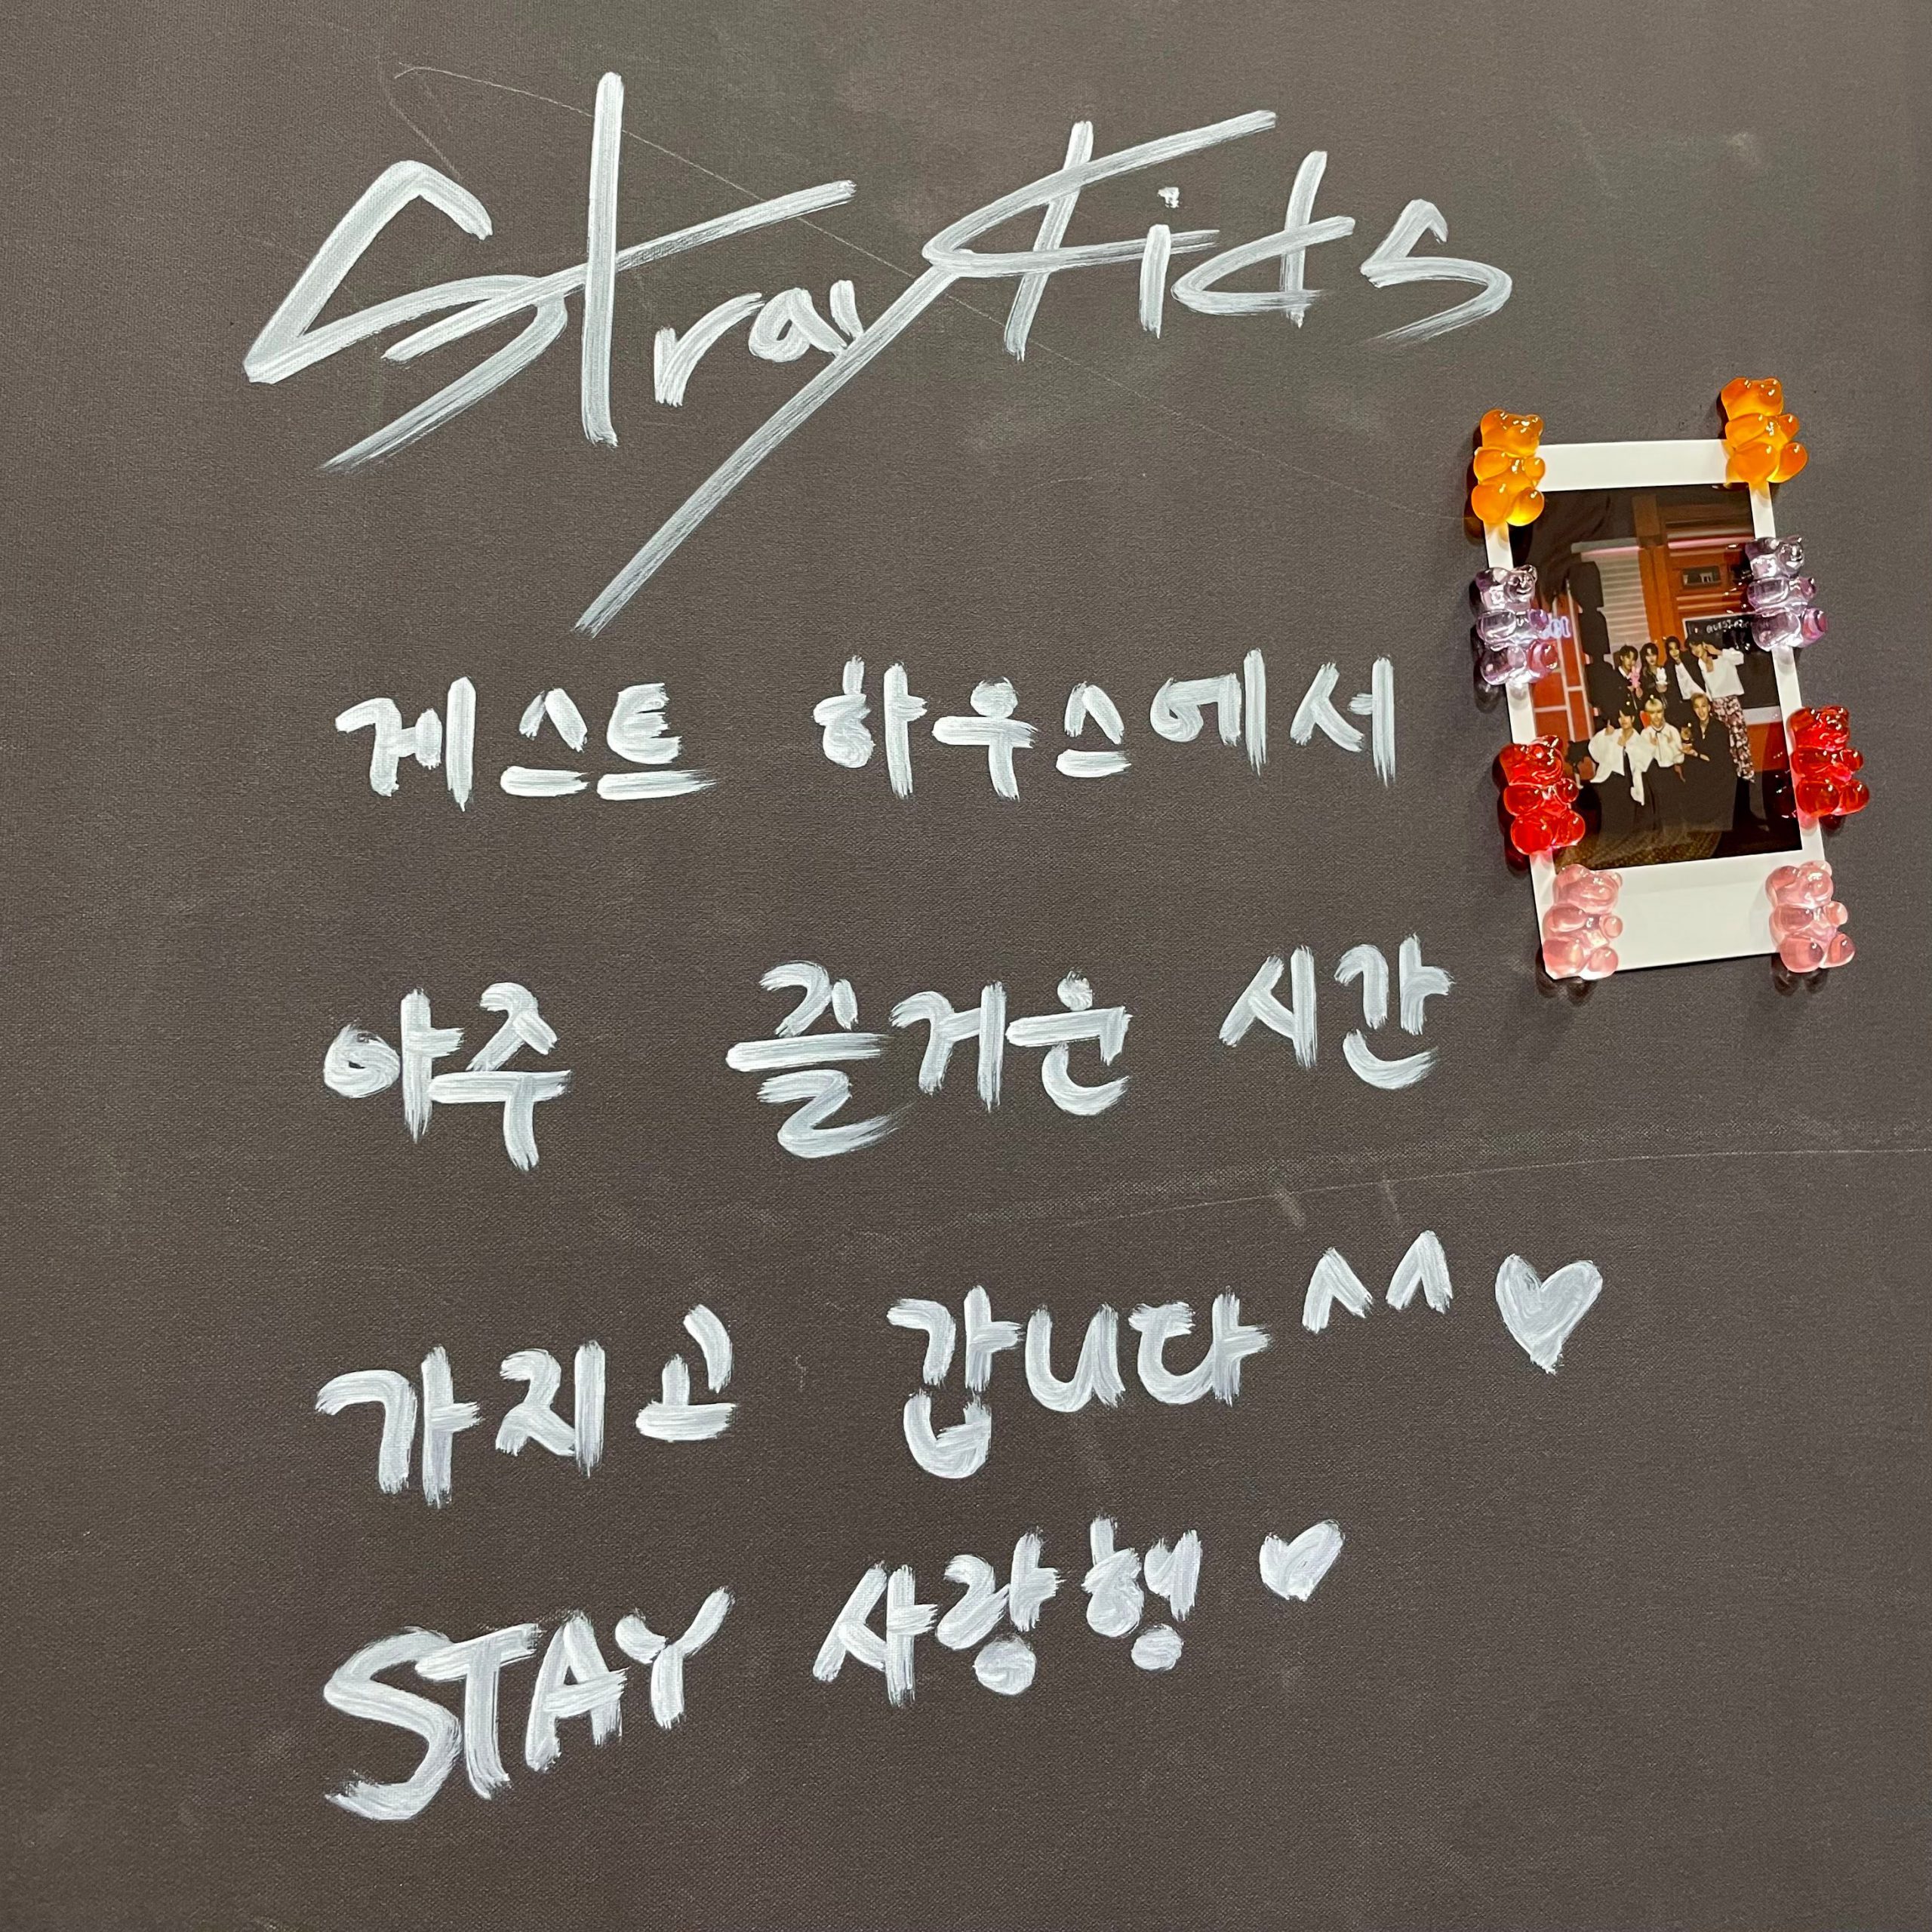 Stray Kids
게스트 하우스에서
아주 즐거운 시간
가지고 갑니다^^♥
STAY 사랑행♥